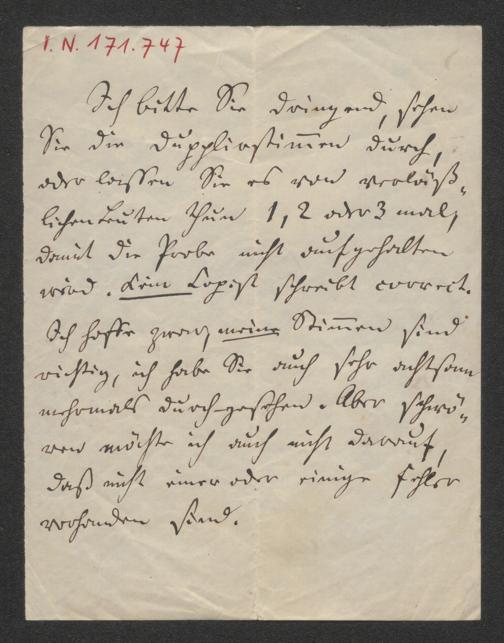 I. N. 171.747
Ich bitte Sie dringend, sehen
Sie die Dupplirstimmen durch,
oder lassen Sie es von verläß-
lichen Leuten thun 1, 2 oder 3 mal,
damit die Probe nicht aufgehalten
wird. Kein Copist schreibt correct.
Ich hoffe zwar, meine Stimmen sind
richtig, ich habe Sie auch sehr achtsam
mehrmals durchgesehen. Aber schwö-
ren möchte ich auch nicht darauf,
daß nicht einer oder einige Fehler
vorhanden sind.